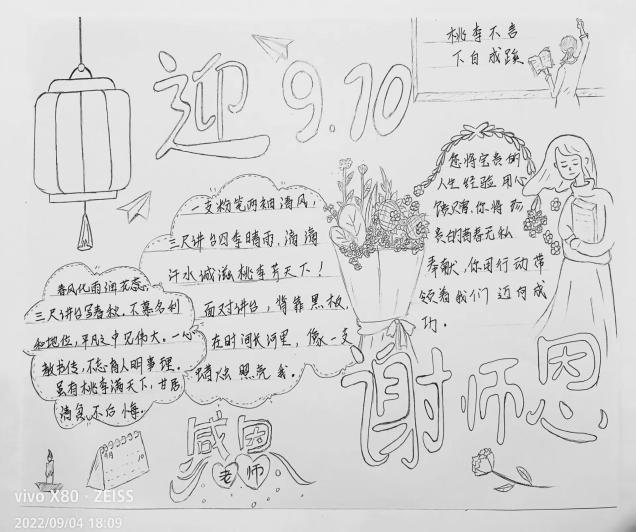 迎9.10
桃李不言
下自成蹊
您将宝贵的
人生经验用心
良的青春无私
奉献，你用行动带
领着我们迈向成
功。
一支粉笔两袖清风，
三尺讲台四季晴雨，滴滴
汗水诚滋桃李芳天下！
面对讲台，背靠黑板，
在时间长河里，像一支
蜡烛照亮我。
春风化雨润花蕊，
三尺讲台写春秋。不慕名利
和地位，平凡之中见伟大。一心
教书传，不忘育人明事理。
虽有桃李满天下，甘居
清贫不后悔。
谢师恩
感恩
老师
vivo X80 · ZEISS
2022/09/04 18:09